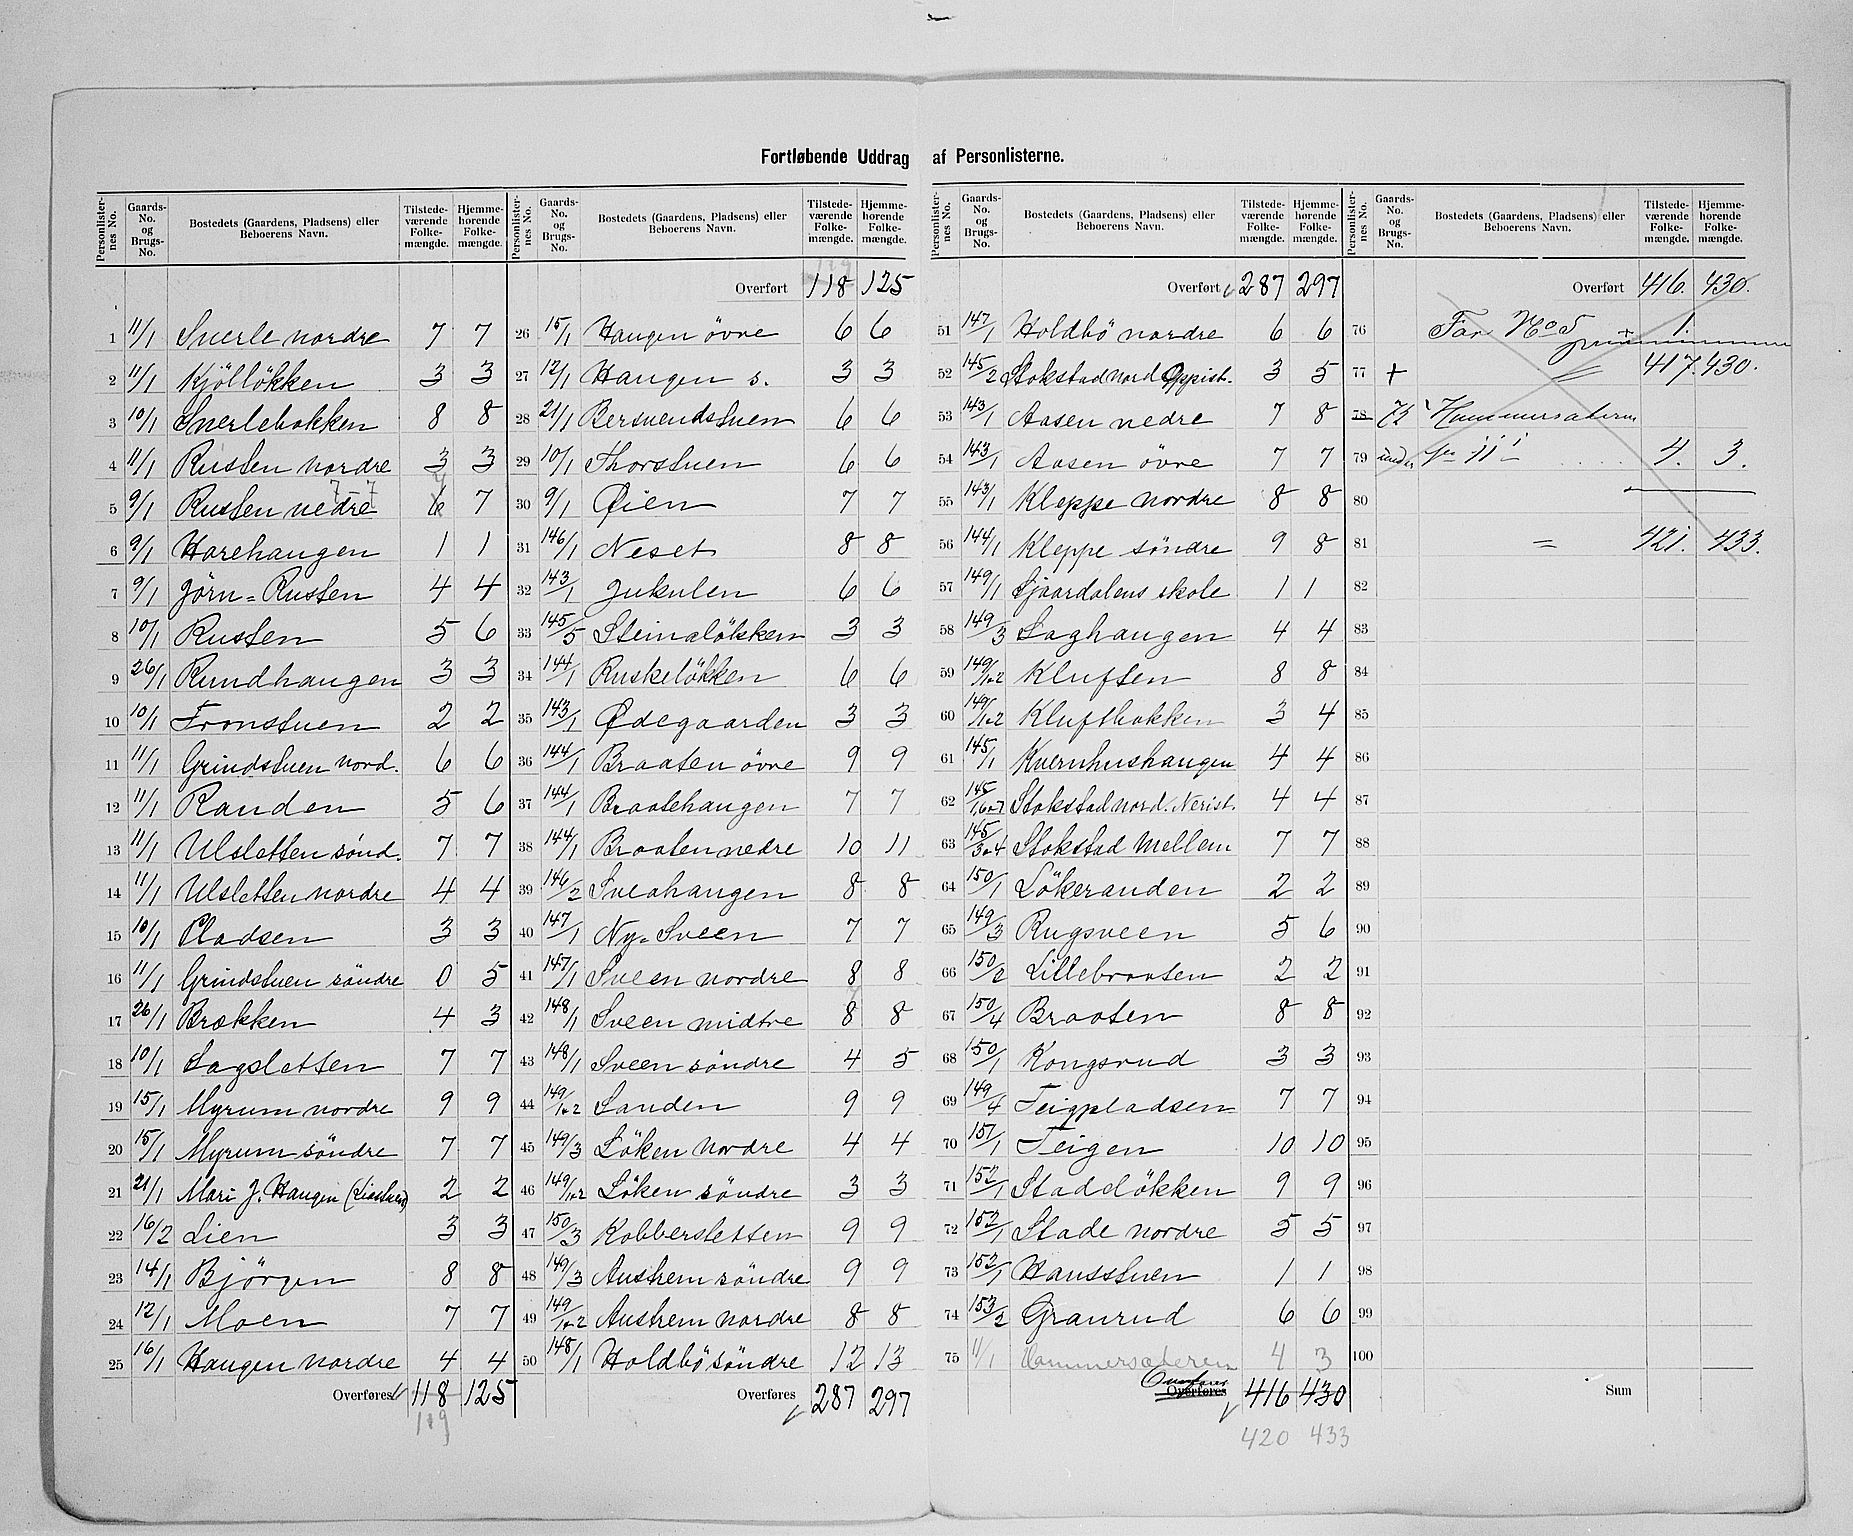 Fortløbende Uddrag af Personlisterne.
Personlister-nes No. Gaards-No. og Brugs-No. Bostedets (Gaardens, Pladsens) eller Beboerens Navn. Tilstede-værende Folke-mængde. Hjemme-hørende Folke-mængde.
1 11/1 Snerle nordre 7 7
2 11/1 Kjölløkken 3 3
3 10/1 Snerlebakken 8 8
4 11/1 Rusten nordre 3 3
5 9/1 Rusten nedre 7 7 6 7
6 9/1 Harehaugen 1 1
7 9/1 Jörn-Rusten 4 4
8 10/1 Rusten 5 6
9 26/1 Rundhaugen 3 3
10 10/1 Fronstuen 2 2
11 11/1 Grindstuen nord. 6 6
12 11/1 Randen 5 6
13 11/1 Ulsletten sönd. 7 7
14 11/1 Ulsletten nordre 4 4
15 10/1 Pladsen 3 3
16 11/1 Grindstuen söndre 0 5
17 26/1 Brækken 4 3
18 10/1 Sagsletten 7 7
19 15/1 Myrum nordre 9 9
20 15/1 Myrum söndre 7 7
21 21/1 Mari J. Haugen 2 2
22 16/2 Lien 3 3
23 14/1 Björgen 8 8
24 12/1 Moen 7 7
25 16/1 Haugen nordre 4 4
Overføres 118 125
119
Personlister-nes No. Gaards-No. og Brugs-No. Bostedets (Gaardens, Pladsens) eller Beboerens Navn. Tilstede-værende Folke-mængde. Hjemme-hørende Folke-mængde.
119
Overført 118 125
26 15/1 Haugen övre 6 6
27 12/1 Haugen s. 3 3
28 21/1 Bersvendstuen 6 6
29 10/1 Thorstuen 6 6
30 9/1 Øien 7 7
31 146/1 Neset 8 8
32 143/1 Jukulen 6 6
33 145/5 Steinalökken 3 3
34 144/1 Ruskelökken 6 6
35 143/1 Ødegaarden 3 3
36 144/1 Braaten övre 9 9
37 144/1 Braatehaugen 7 7
38 144/1 Braaten nedre 10 11
39 146/2 Sveahaugen 8 8
40 147/1 Ny-Sveen 7 7
41 147/1 Sveen nordre 8 8
42 148/1 Sveen midtre 8 8
43 148/1 Sveen söndre 4 5
44 149/1+2 Sanden 9 9
45 149/3 Löken nordre 4 4
46 149/1+2 Löken söndre 3 3
47 150/3 Kobbersletten 9 9
48 149/3 Austrem söndre 9 9
49 149/1+2 Austrem nordre 8 8
50 148/1 Holdbö söndre 12 13
Overføres 287 297
Personlister-nes No. Gaards-No. og Brugs-No. Bostedets (Gaardens, Pladsens) eller Beboerens Navn. Tilstede-værende Folke-mængde. Hjemme-hørende Folke-mængde.
Overført 287 297
51 147/1 Holdbö nordre 6 6
52 145/2 Stokstad nord Oppist. 3 5
53 143/1 Aasen nedre 7 8
54 143/1 Aasen övre 7 7
55 143/1 Kleppe nordre 8 8
56 144/1 Kleppe söndre 9 8
57 149/1 Sjaardalens skole 1 1
58 149/3 Saghaugen 4 4
59 149/1+2 Kluften 8 8
60 149/1+2 Kluftbakken 3 4
61 145/1 Kvernhushaugen 4 4
62 145/1,6+7 Stokstad nord. Nerist. 4 4
63 145/3+4 Stokstad Mellem 7 7
64 150/1 Lökeranden 2 2
65 149/3 Rugsveen 5 6
66 150/2 Lillebraaten 2 2
67 150/4 Braaten 8 8
68 150/1 Kongsrud 3 3
69 149/4 Teigpladsen 7 7
70 151/1 Teigen 10 10
71 152/1 Stadelökken 9 9
72 152/1 Stade nordre 5 5
73 152/1 Hansstuen 1 1
74 153/2 Granrud 6 6
75 11/1 Hammersæteren 4 3
Overføres 416 430
420 433
Personlister-nes No. Gaards-No. og Brugs-No. Bostedets (Gaardens, Pladsens) eller Beboerens Navn. Tilstede-værende Folke-mængde. Hjemme-hørende Folke-mængde.
Overført 416. 430.
76 For No 5 + 1.
77 + = 417. 430.
78 75 Hammersæteren
79 under 4. 3.
80
81 = 421. 433.
82
83
84
85
86
87
88
89
90
91
92
93
94
95
96
97
98
99
100
Sum